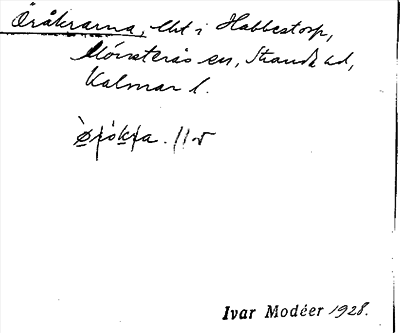 Öråkrarna, lht i Habbestorp,
Mönsterås sn, Stranda hd,
Kalmar l.
Ivar Modéer 1928.